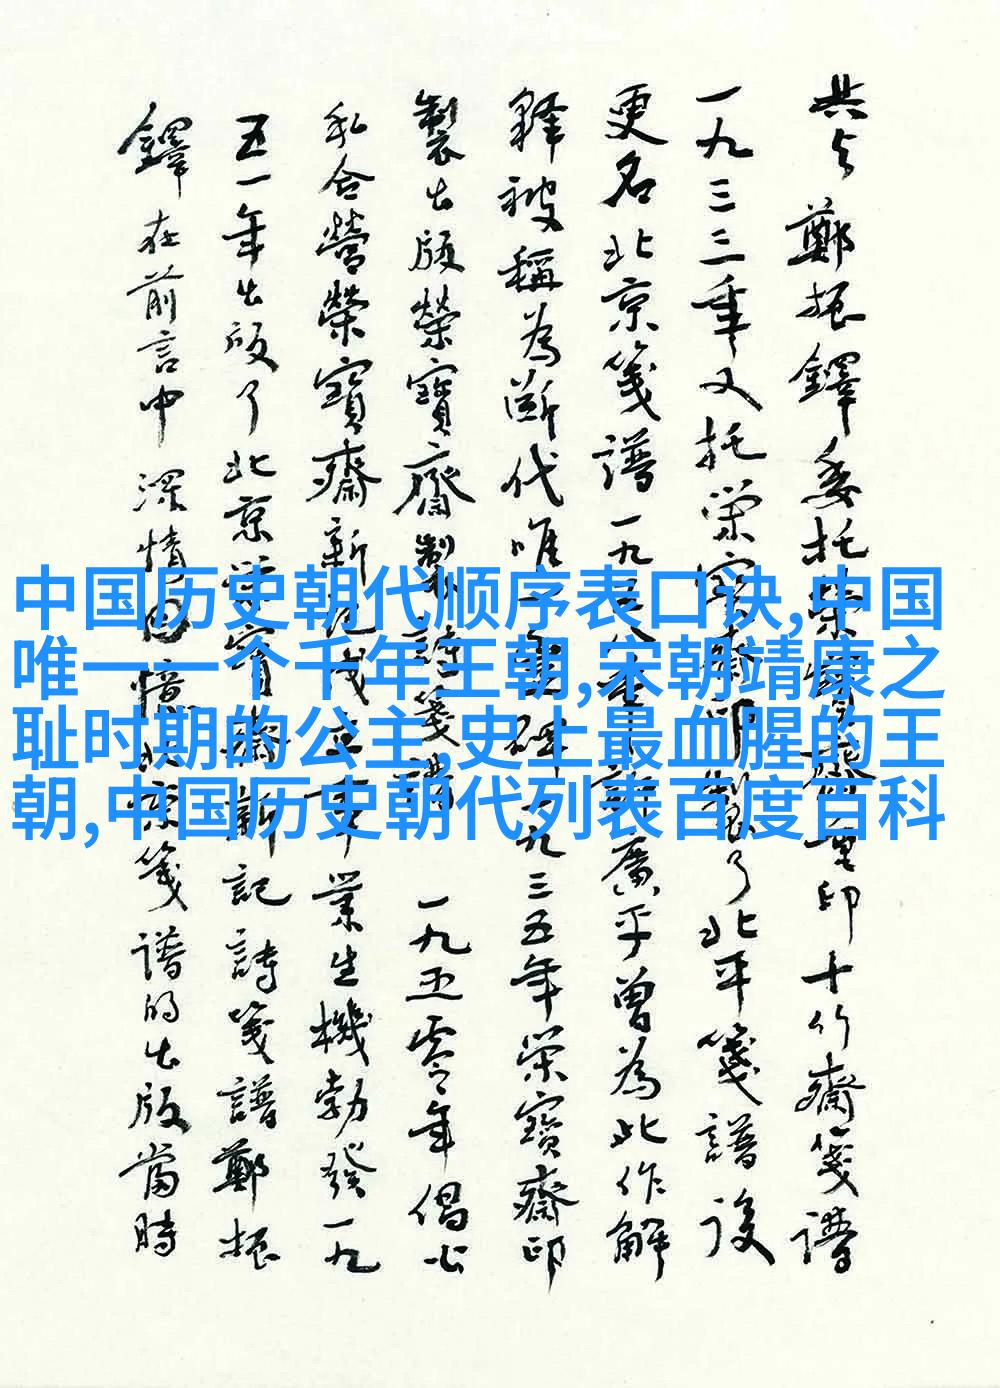 共与鄭振鐸委托榮寶齋重印十竹齋箋譜
一九三三年又托榮寶齋印製了北平箋譜後
更名北京箋譜一九五八年許廣平曾為此作解
釋被稱為斷代唯一豐碑一九三五年榮寶齋印
製出版榮寶齋製詩箋譜一九五零年倡公
私合營榮寶齋新記成立事業生機勃發一九
五一年出版了北京榮寶齋新記詩箋譜鄭振
鐸在前言中深情回憶北京箋譜的出版當時
中国历史朝代顺序表口诀,中国
唯一一个千年王朝,宋朝靖康之
耻时期的公主,史上最血腥的王
朝,中国历史朝代列表百度百科